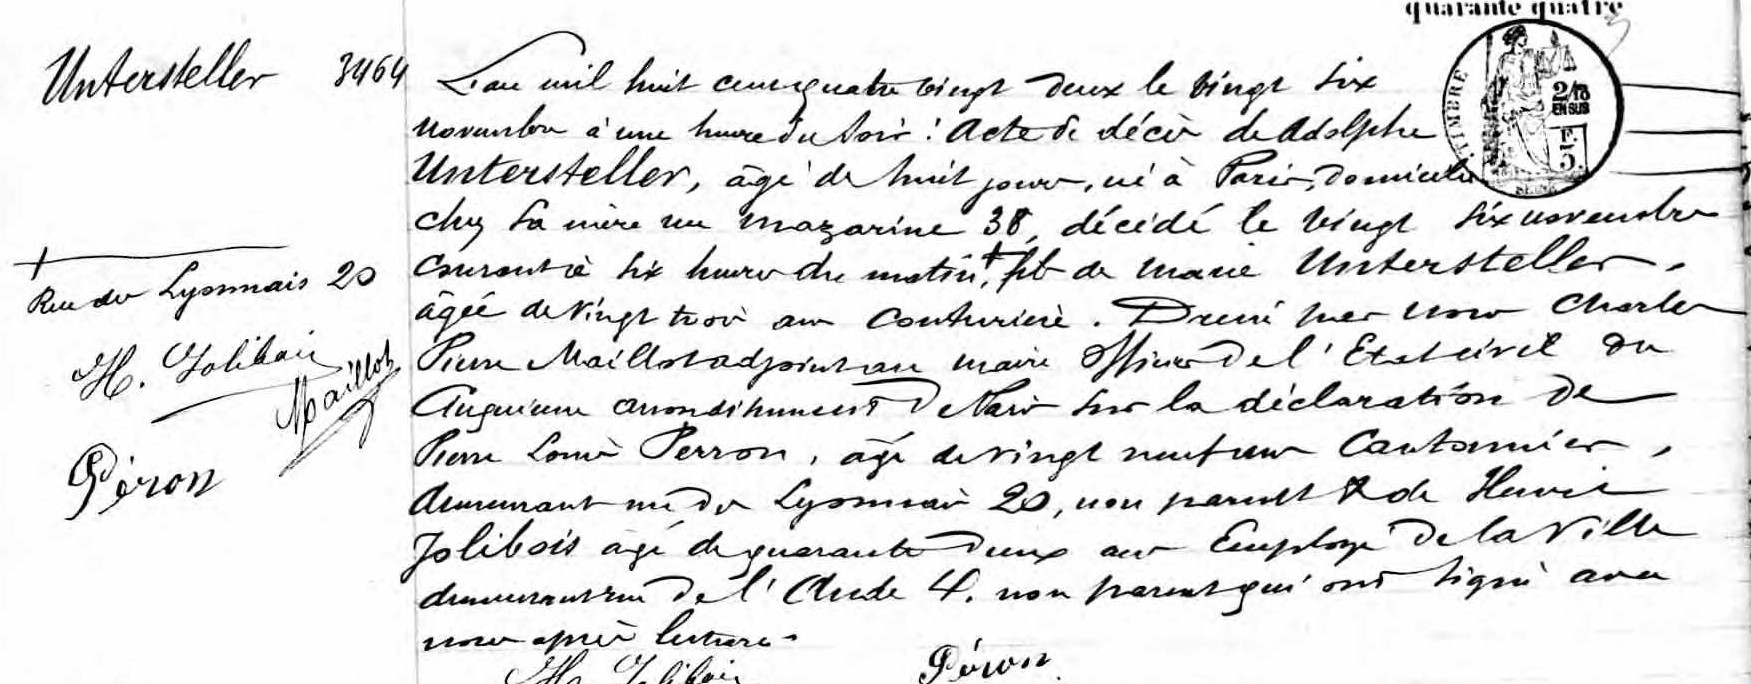 quarante quatre
Untersteller 3464
L'an mil huit cent quatre vingt deux le vingt six
novembre à une heure du soir : Acte de décès de Adolphe
Untersteller, âgé de huit jours, né à Paris, domicilié
chez sa mère rue mazarine 38, décédé le vingt six novembre
courant à six heures du matin, + fils de marie Untersteller,
âgée de vingt trois ans couturière. Dressé par nous Charles
Pierre Maillot adjoint au maire officier de l'Etat civil du
cinquième arrondissement de Paris sur la déclaration de
Pierre Louis Perron, âgé de vingt neuf ans Cantonnier,
demeurant rue des Lyonnais 20, non parent & de Henri
Jolibois âgé de quarante deux ans Employé de la Ville
demeurant rue de l' 4. non parent qui ont signé avec
nous après lecture.
+
Rue des Lyonnais 20
H. Jolibois
Maillot
Péron
H. Jolibois Péron
TIMBRE
2/10
EN SUS
SEINE